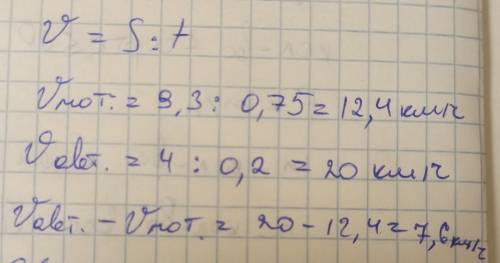 V = S : t
Vмот. = 9,3 : 0,75 = 12,4 км/ч
Vавт. = 4 : 0,2 = 20 км/ч
Vавт. - Vмот. = 20 - 12,4 = 7,6 км/ч